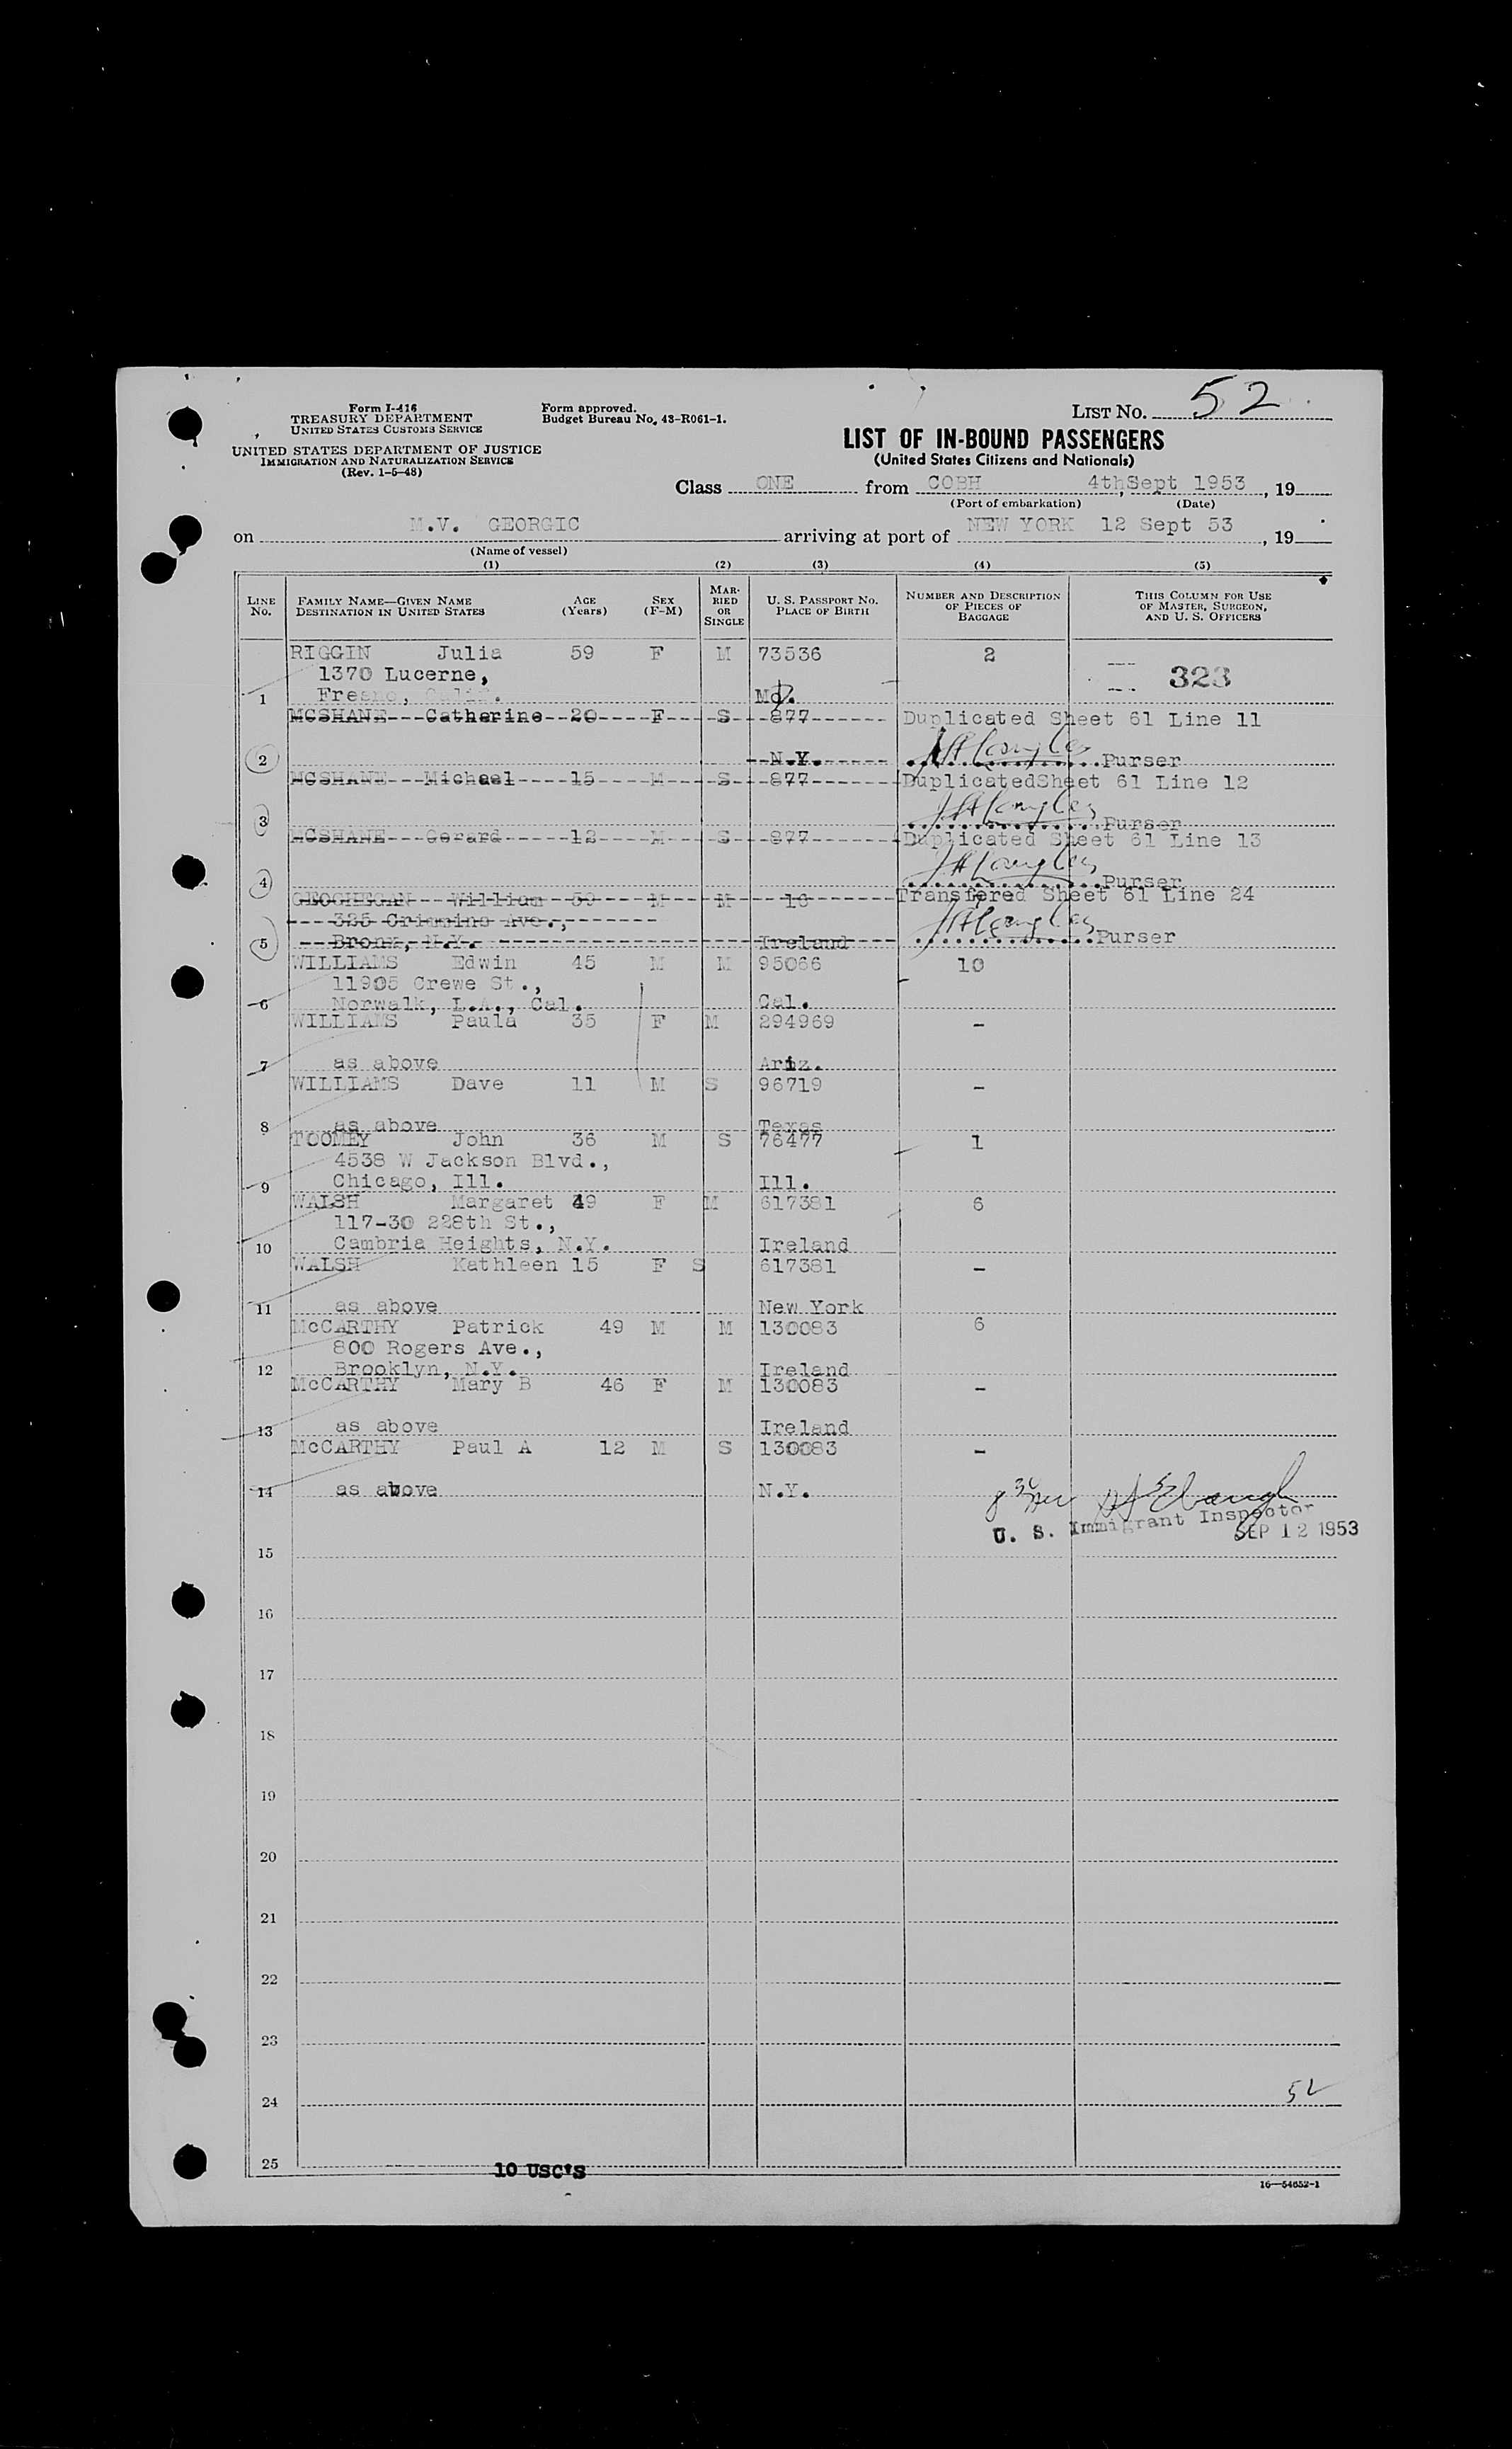 Form I-416
TREASURY DEPARTMENT
UNITED STATES CUSTOMS SERVICE
UNITED STATES DEPARTMENT OF JUSTICE
IMMIGRATION AND NATURALIZATION SERVICE
(Rev. 1-5-48)
Form approved.
Budget Bureau No. 43-R061-1.
LIST NO. 52
LIST OF IN-BOUND PASSENGERS
(United States Citizens and Nationals)
Class ONE from COBH 4th Sept 1953, 19
(Port of embarkation) (Date)
on M.V. GEORGIC arriving at port of NEW YORK 12 Sept 53, 19
(Name of vessel)
(1) (2) (3) (4) (5)
LINE NO. FAMILY NAME—GIVEN NAME DESTINATION IN UNITED STATES AGE (Years) SEX (F-M) MARRIED OR SINGLE U. S. PASSPORT NO. PLACE OF BIRTH NUMBER AND DESCRIPTION OF PIECES OF BAGGAGE THIS COLUMN FOR USE OF MASTER, SURGEON, AND U. S. OFFICERS
RIGGIN Julia 59 F M 73536 2
1370 Lucerne, 323
1 Fresno, Calif. Mo.
MCSHANE Catherine 20 F S 877 Duplicated Sheet 61 Line 11
2 N.Y. Purser
MCSHANE Michael 15 M S 877 DuplicatedSheet 61 Line 12
3 Purser
MCSHANE Gerard 12 M S 877 Duplicated Sheet 61 Line 13
4 Purser
GEOGHEGAN William 59 M M 16 Transfered Sheet 61 Line 24
325 Crimmins Ave.,
5 Bronx, N.Y. Ireland Purser
WILLIAMS Edwin 45 M M 95066 10
11905 Crewe St.,
6 Norwalk, L.A., Cal. Cal.
WILLIAMS Paula 35 F M 294969 –
7 as above Ariz.
WILLIAMS Dave 11 M S 96719 –
8 as above Texas
TOOMEY John 36 M S 76477 1
4538 W Jackson Blvd.,
9 Chicago, Ill. Ill.
WALSH Margaret 49 F M 617381 6
117-30 228th St.,
10 Cambria Heights, N.Y. Ireland
WALSH Kathleen 15 F S 617381 –
11 as above New York
McCARTHY Patrick 49 M M 130083 6
800 Rogers Ave.,
12 Brooklyn, N.Y. Ireland
McCARTHY Mary B 46 F M 130083 –
13 as above Ireland
McCARTHY Paul A 12 M S 130083 –
14 as above N.Y.
U. S. Immigrant Inspector
SEP 12 1953
15
16
17
18
19
20
21
22
23
52
24
25
10 USC'S
16—54652-1